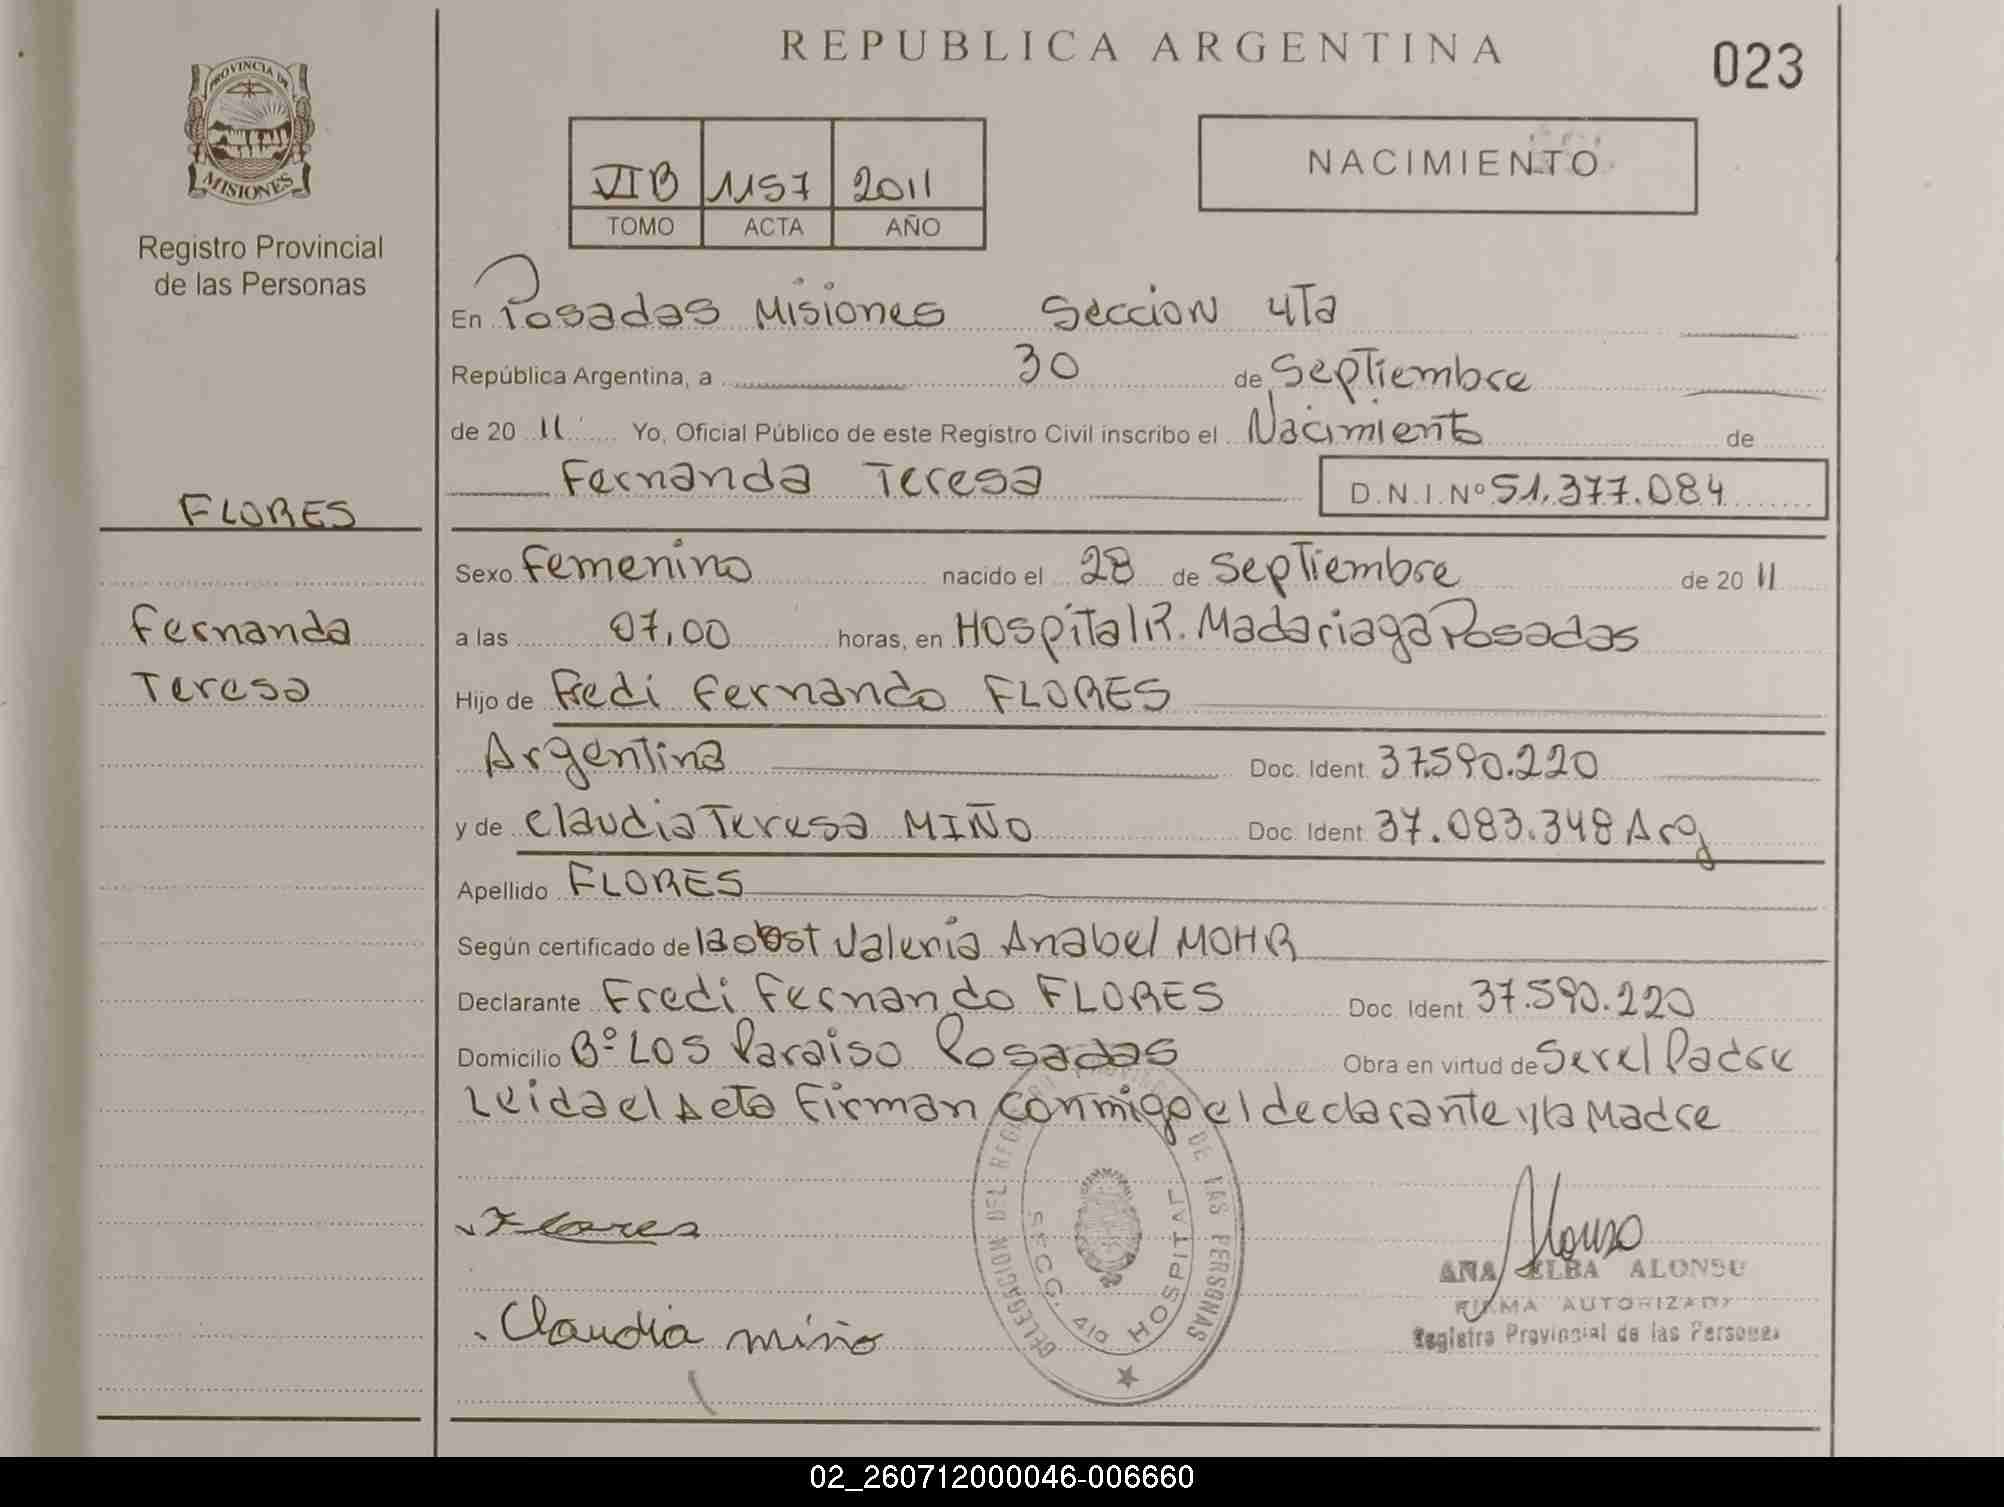 REPUBLICA ARGENTINA
023
PROVINCIA DE
MISIONES
Registro Provincial
de las Personas
VI B 1157 2011
TOMO ACTA AÑO
NACIMIENTO
En Posadas Misiones Seccion 4Ta
República Argentina, a 30 de Septiembre
de 20 11 Yo, Oficial Público de este Registro Civil inscribo el Nacimiento de
Fernanda Teresa D.N.I.Nº 51.377.084
FLORES
Fernanda
Teresa
Sexo Femenino nacido el 28 de Septiembre de 20 11
a las 07,00 horas, en Hospital R. Madariaga Posadas
Hijo de Fredi Fernando FLORES
Argentina Doc. Ident. 37.590.220
y de Claudia Teresa MIÑO Doc. Ident. 37.083.348 Arg
Apellido FLORES
Según certificado de la obst Valeria Anabel MOHR
Declarante Fredi Fernando FLORES Doc. Ident. 37.590.220
Domicilio Bº Los Paraiso Posadas Obra en virtud de Ser el Padre
Leida el Acta Firman conmigo el declarante y la Madre
Flores
Claudia miño
DELEGACION DEL REGISTRO PROVINCIAL DE LAS PERSONAS
SECC. 4ta HOSPITAL
Alonso
ANA ELBA ALONSO
FIRMA AUTORIZADA
Registro Provincial de las Personas
02_260712000046-006660